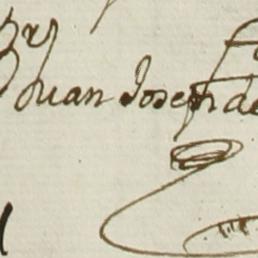 Juan Joseph de